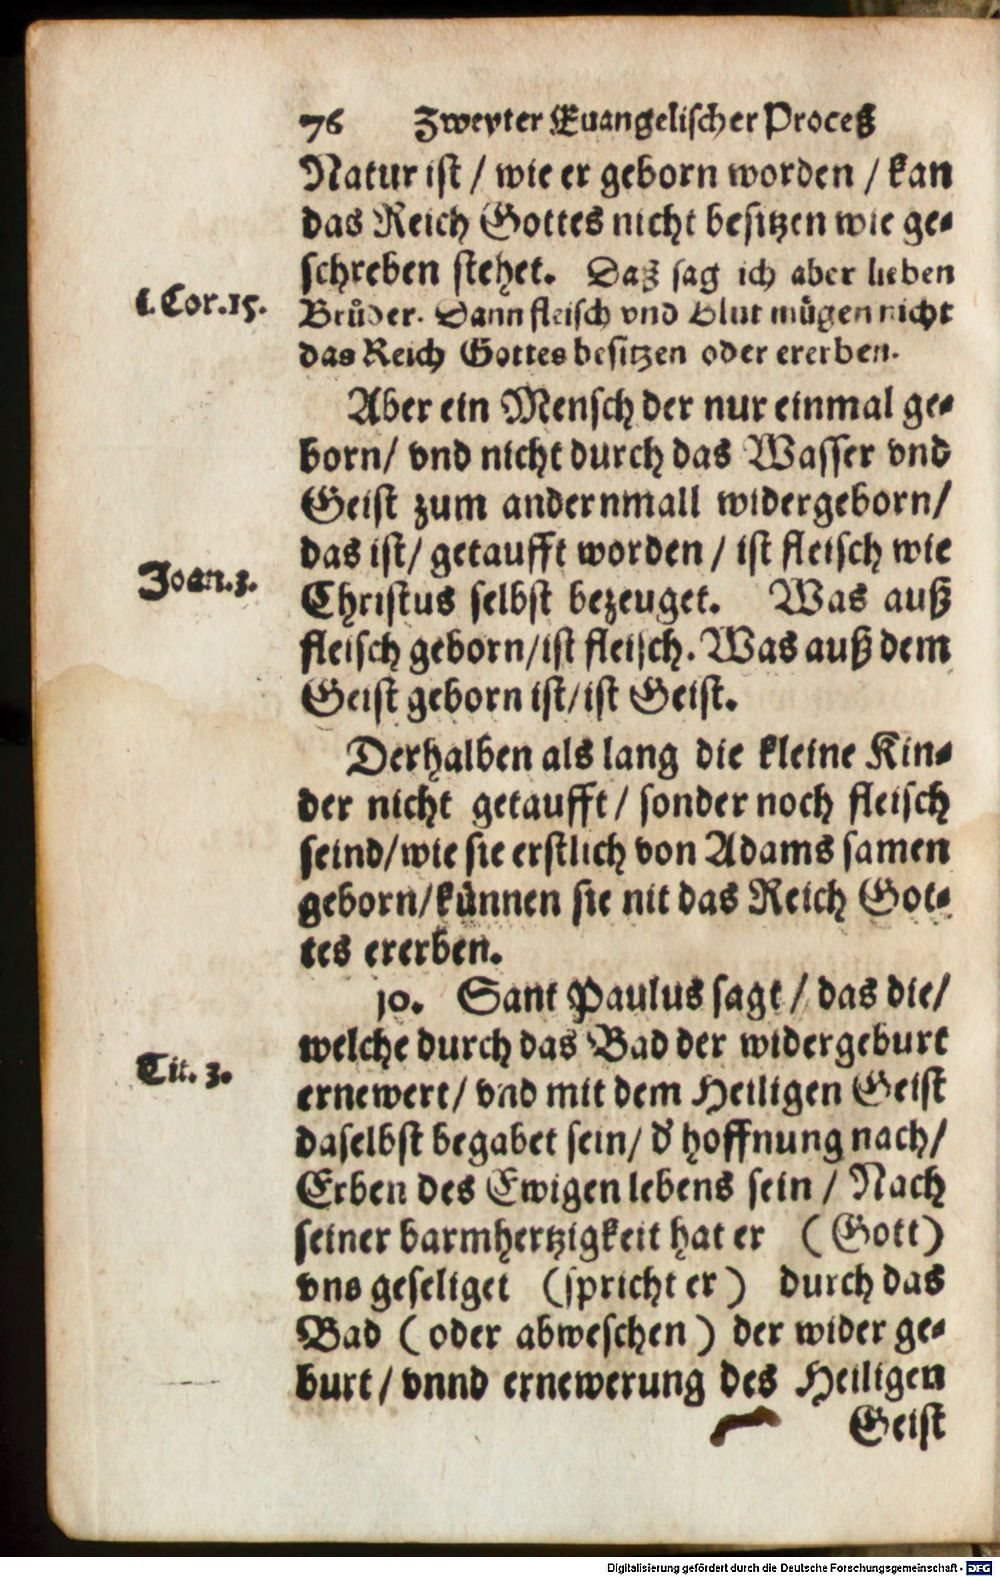 76 Zweyter Euangelischer Proceß
Natur ist / wie er geborn worden / kan
das Reich Gottes nicht besitzen wie ge-
schreben stehet. Daß sag ich aber lieben
1. Cor. 15.
Brüder. Dann fleisch vnd blut mügen nicht
das Reich Gottes besitzen oder ererben.
Aber ein Mensch der nur einmal ge-
born/ vnd nicht durch das Wasser vnd
Geist zum andernmall widergeborn/
das ist/ getaufft worden / ist fleisch wie
Joan. 3.
Christus selbst bezeuget. Was auß
fleisch geborn/ist fleisch. Was auß dem
Geist geborn ist/ist Geist.
Derhalben als lang die kleine Kin-
der nicht getaufft/ sonder noch fleisch
seind/wie sie erstlich von Adams samen
geborn/künnen sie nit das Reich Got-
tes ererben.
10. Sant Paulus sagt / das die/
welche durch das Bad der widergeburt
Tit. 3.
ernewert/ vnd mit dem Heiligen Geist
daselbst begabet sein/ d' hoffnung nach/
Erben des Ewigen lebens sein / Nach
seiner barmhertzigkeit hat er (Gott)
vns geseliget (spricht er) durch das
Bad (oder abweschen) der wider ge-
burt / vnnd ernewerung des Heiligen
Geist
Digitalisierung gefördert durch die Deutsche Forschungsgemeinschaft - DFG